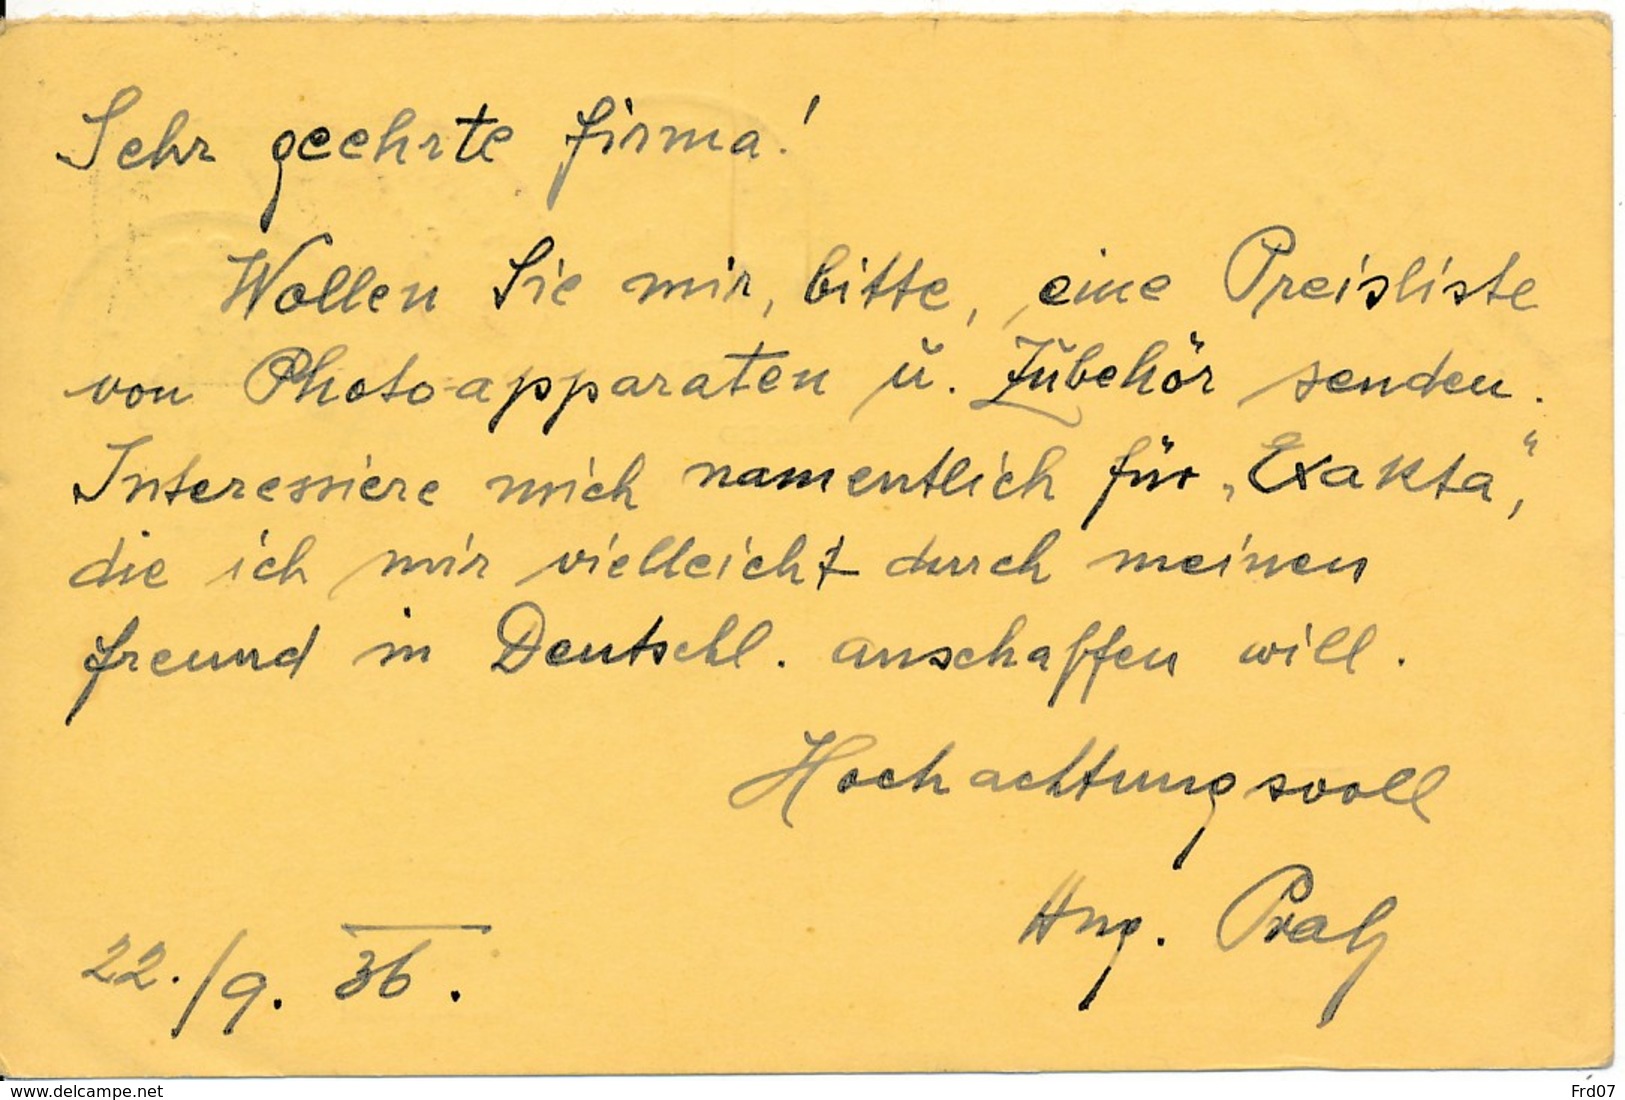 Sehr geehrte Firma!
Wollen Sie mir, bitte, eine Preisliste
von Photo-apparaten u. Zubehör senden.
Interessiere mich namentlich für „Exakta“,
die ich mir vielleicht durch meinen
Freund in Deutschl. anschaffen will.
Hochachtungsvoll
Aug.
22./9. 36.
www.delcampe.net
Frd07